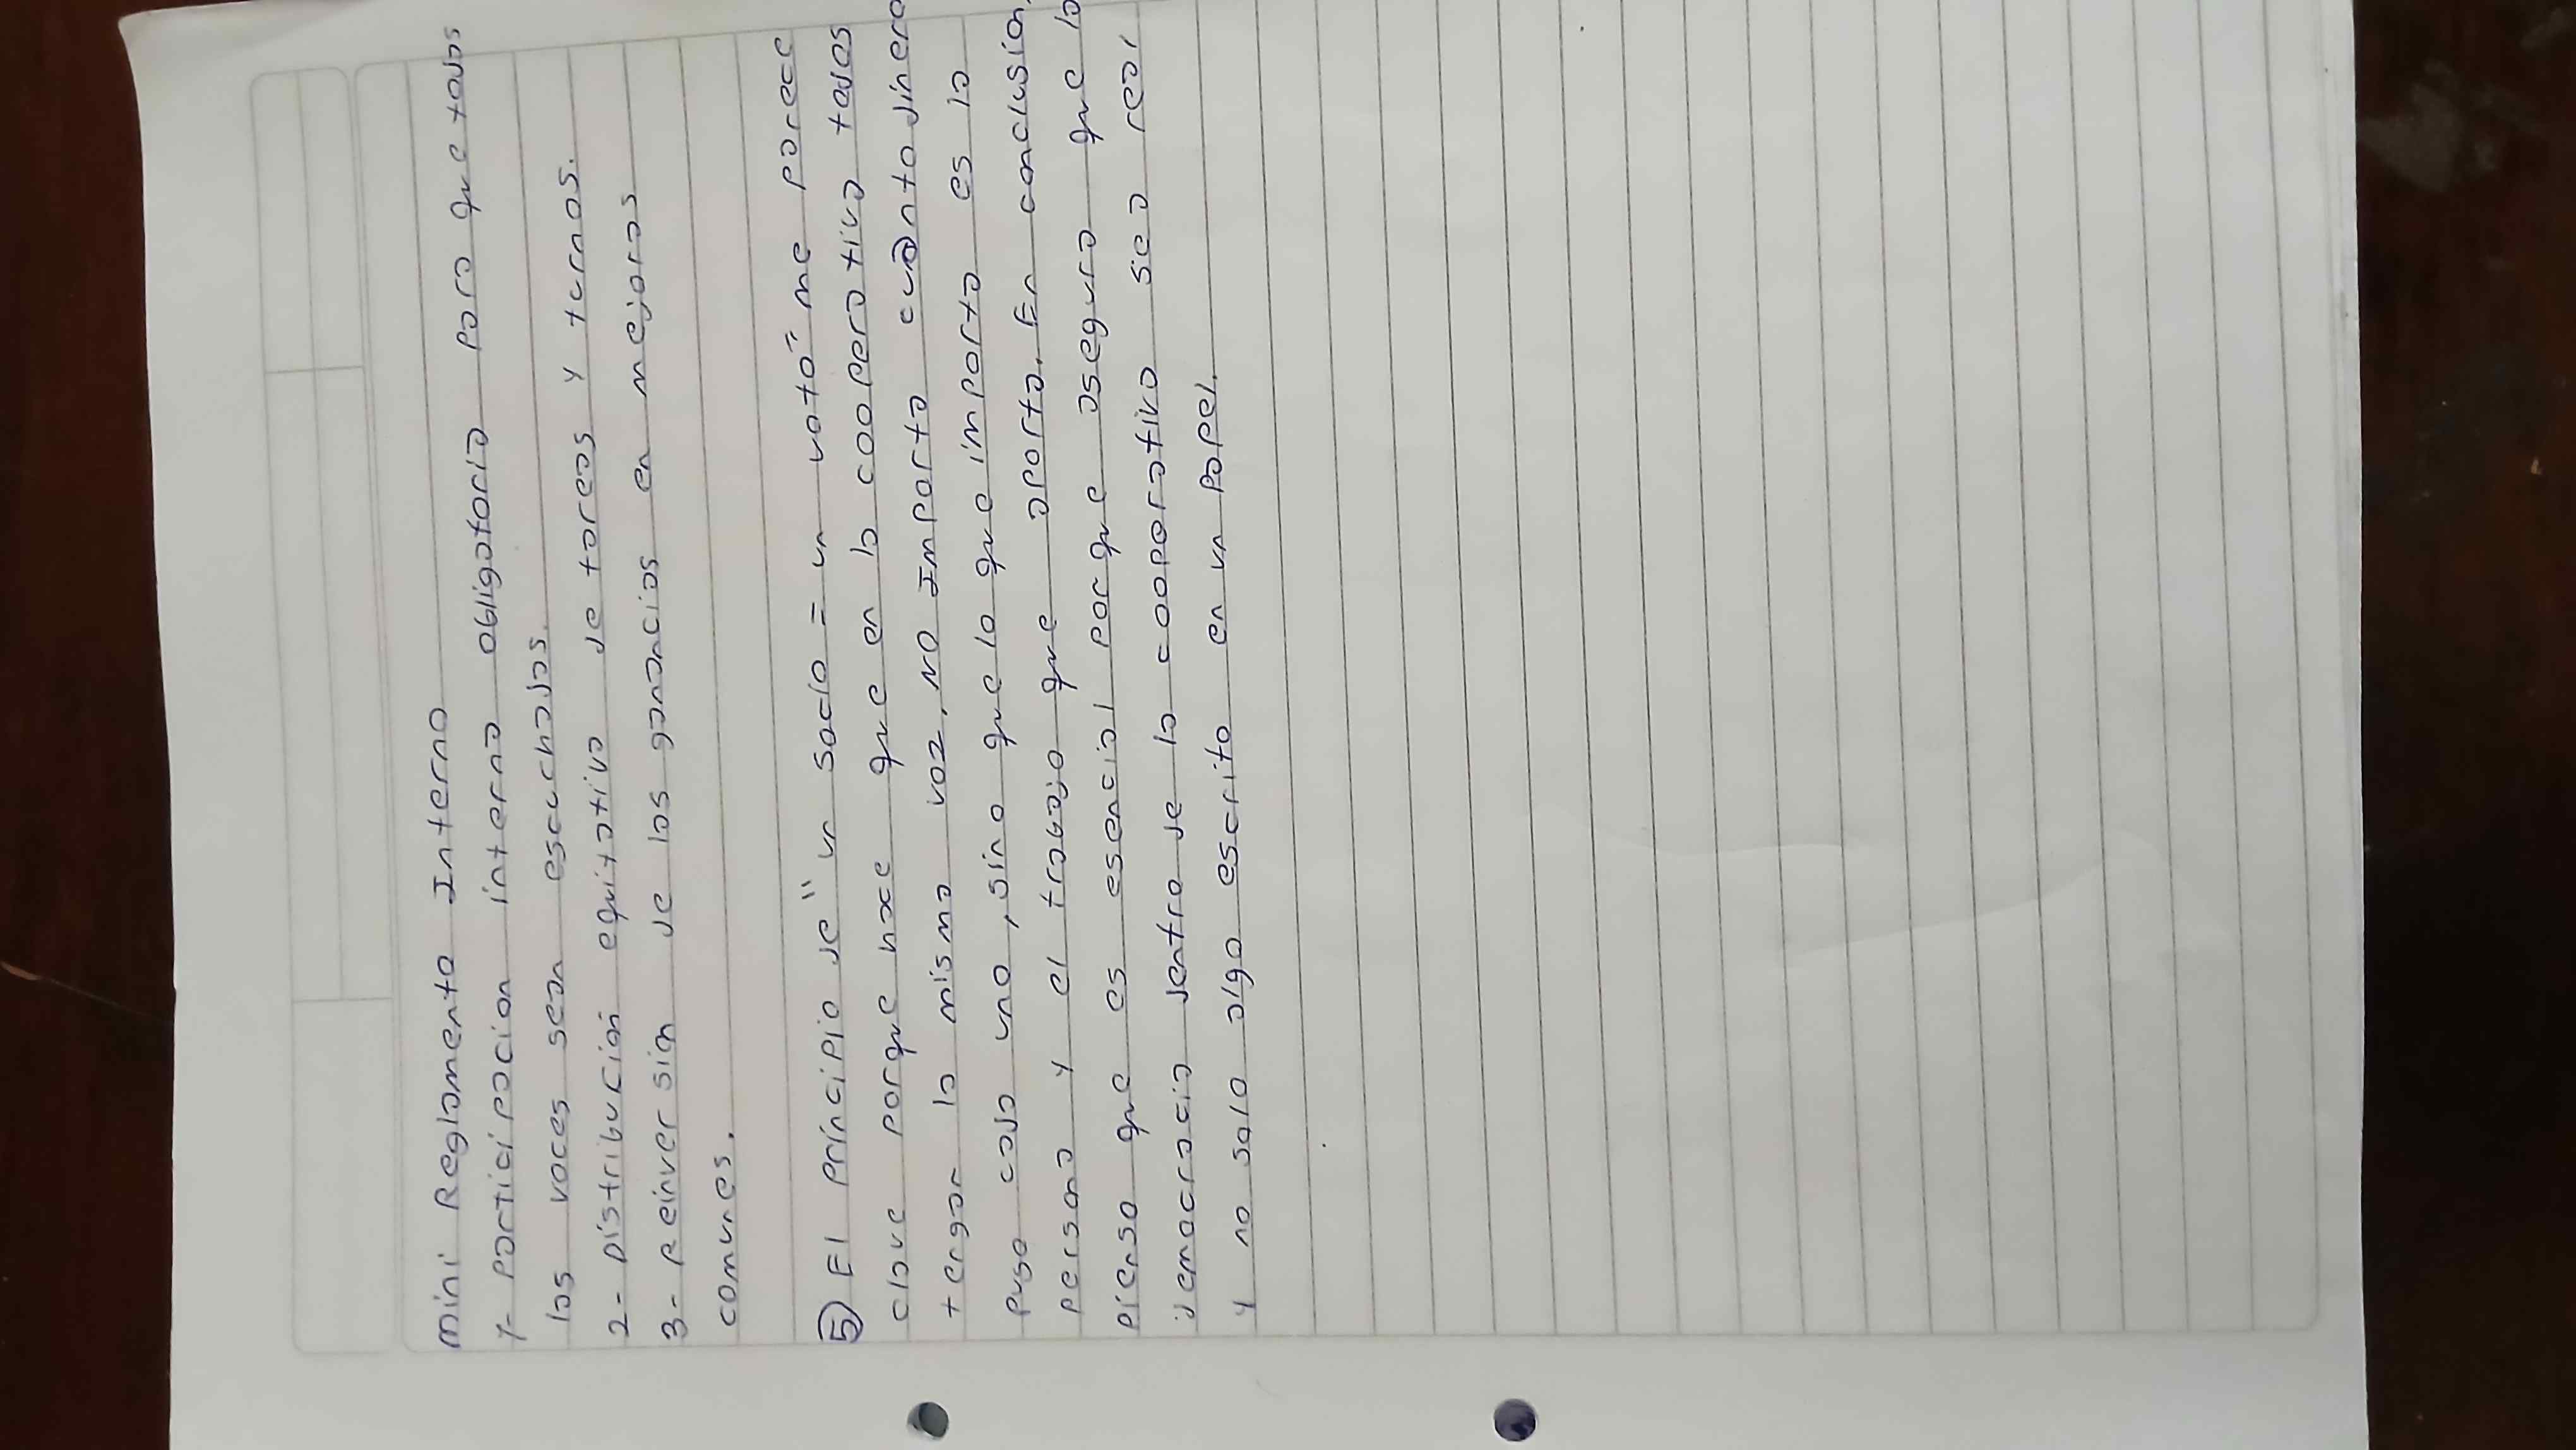 mini Reglamento Interno
1- participacion interna obligatoria para que todas
las voces sean escuchadas.
2- Distribución equitativa de tareas y turnos.
3- Reinversion de las ganancias en mejoras
comunes.
5) El principio de "un socio = un voto" me parece
clave porque hace que en la cooperativa todos
tengan la misma voz, no importa cuánto dinero
puso cada uno, sino que lo que importa es la
persona y el trabajo que aporta. En conclusion,
pienso que es esencial porque asegura que la
democracia dentro de la cooperativa sea real
y no solo algo escrito en un papel.